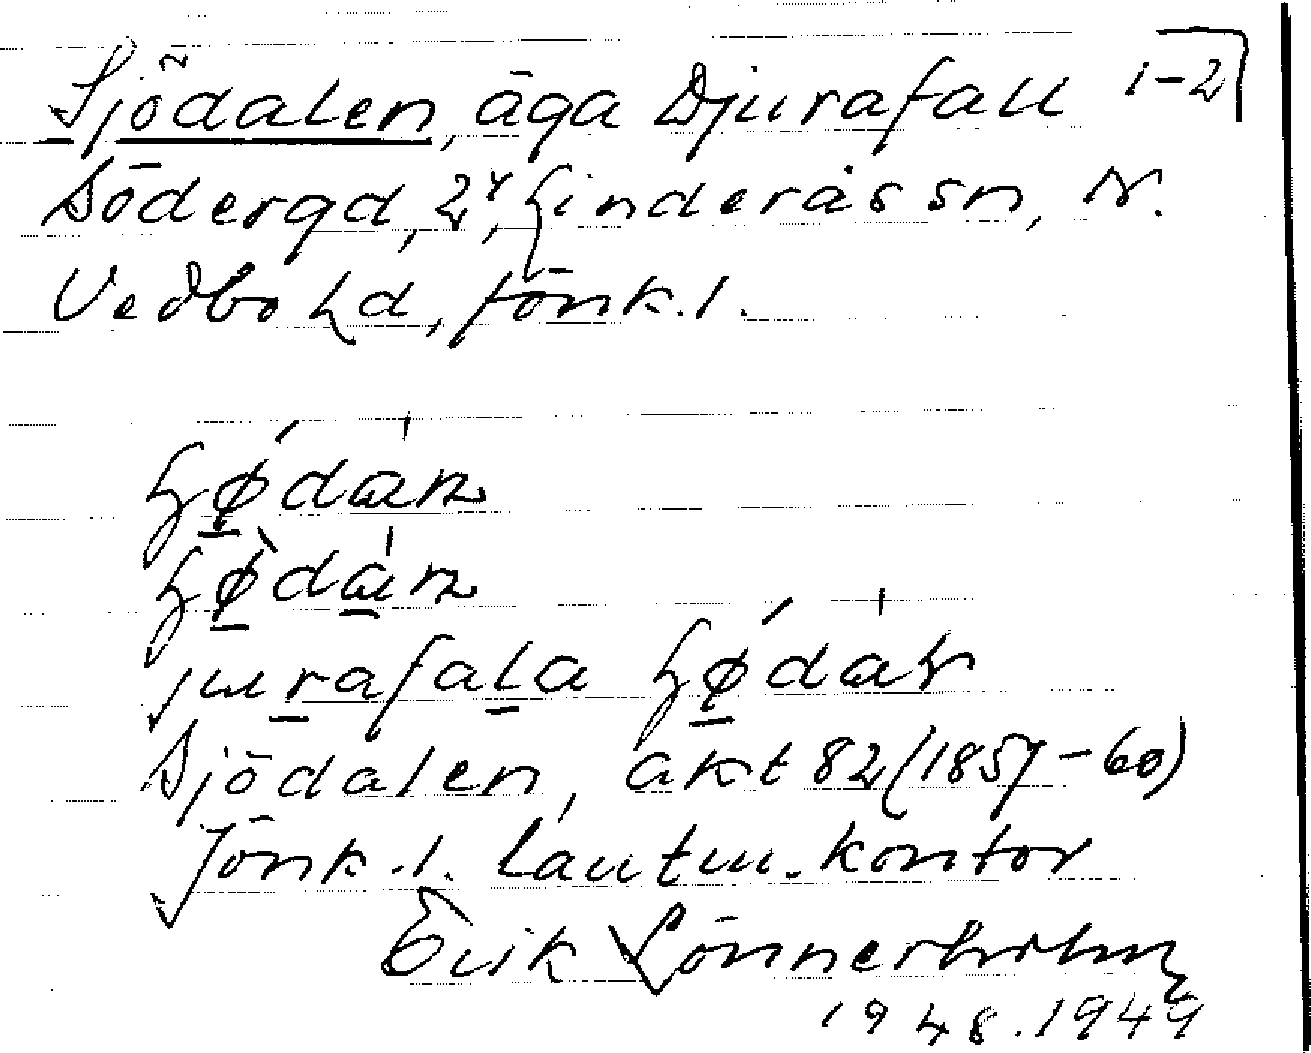 Sjödalen, äga Djurafall 1-2
Södergd, 2ʳ, Linderås sn, N.
Vedbo hd, Jönk. l.
ɧǿ̱dán
ɧø̱̀dá̱n
ju̱rafaḻa ɧǿ̱dár
Sjödalen, akt 82 (1857-60)
Jönk. l. lantm. kontor
Erik Lönnerholm
1948. 1949